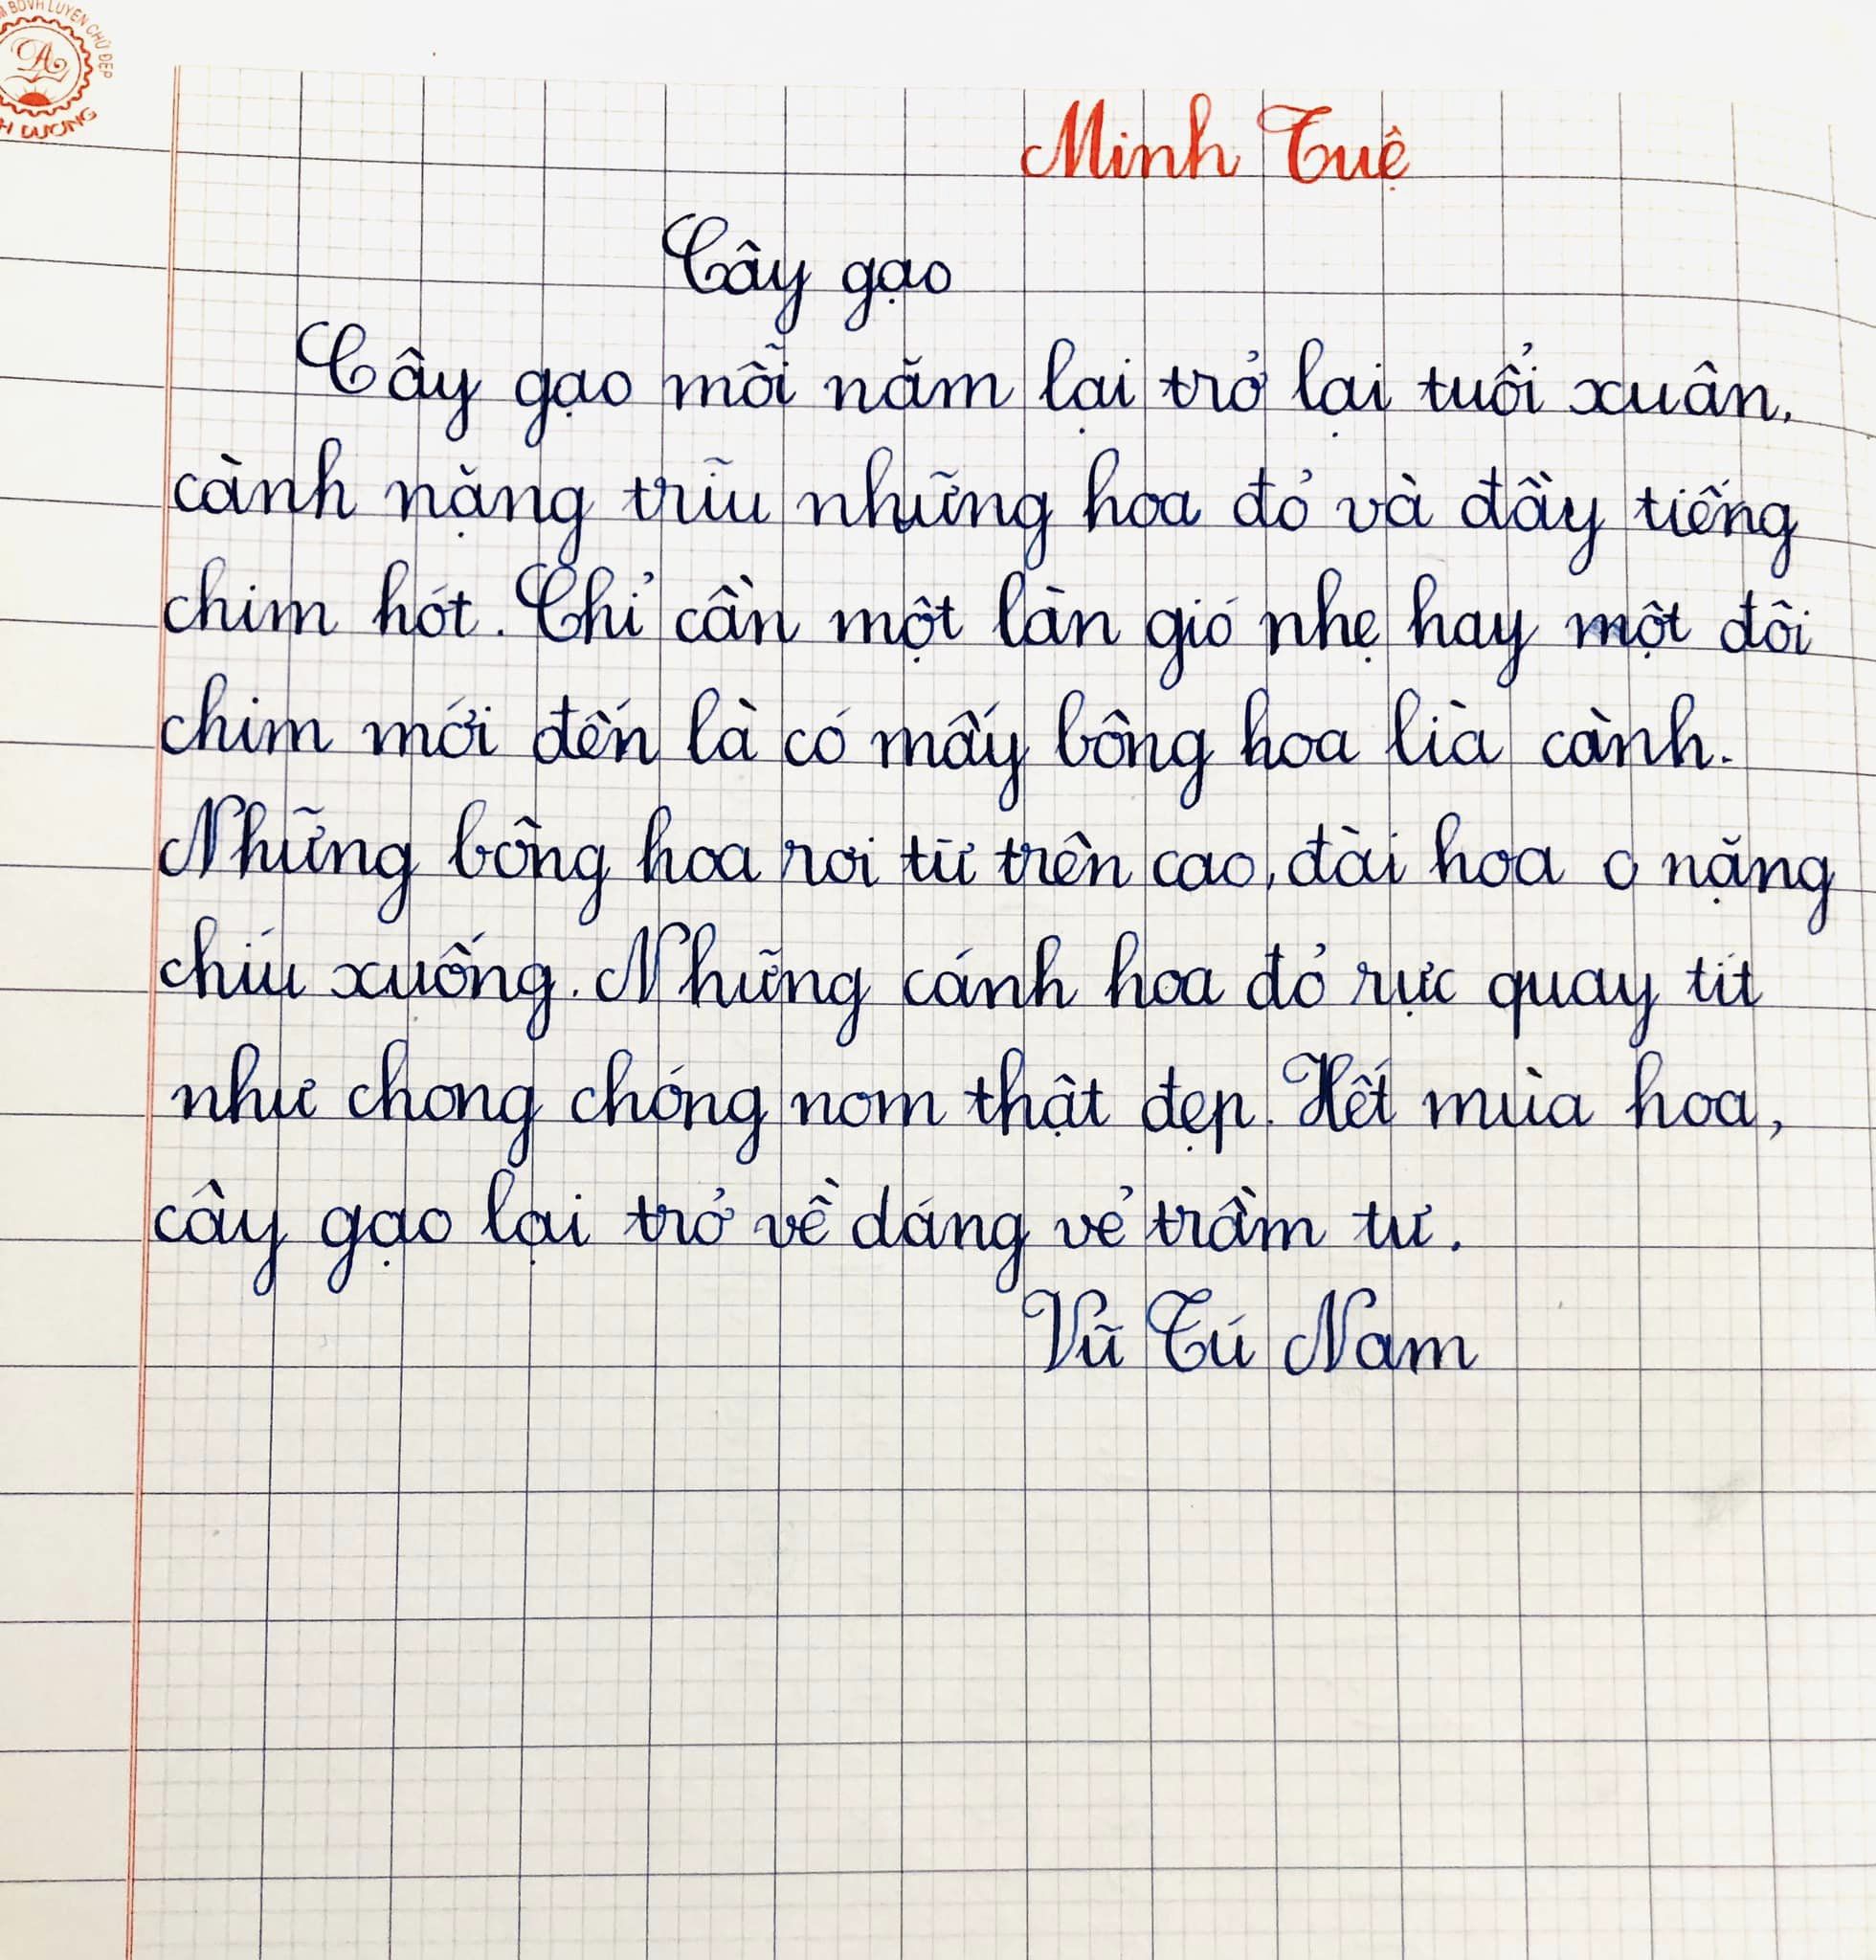 BDVH LUYỆN CHỮ ĐẸP
Minh Tuệ
Cây gạo
Cây gạo mỗi năm lại trở lại tuổi xuân,
cành nặng trĩu những hoa đỏ và đầy tiếng
chim hót. Chỉ cần một làn gió nhẹ hay một đôi
chim mới đến là có mấy bông hoa lìa cành.
Những bông hoa rơi từ trên cao, đài hoa c nặng
chíu xuống. Những cánh hoa đỏ rực quay tít
như chong chóng nom thật đẹp. Hết mùa hoa,
cây gạo lại trở về dáng vẻ trầm tư.
Vũ Tú Nam